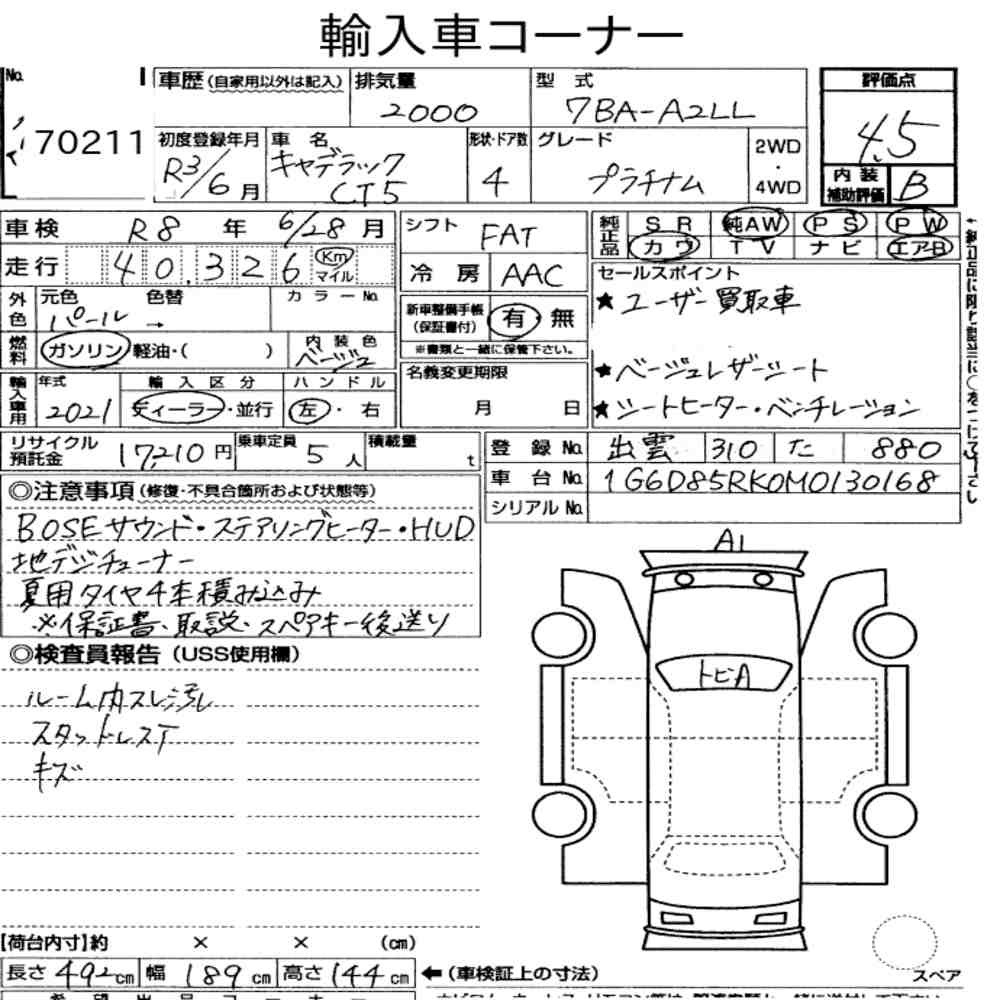 輸入車コーナー
No. 70211
車歴 (自家用以外は記入) 排気量 2000 型式 7BA-A2LL 評価点 4.5
初度登録年月 R3/6月 車名 キャデラック CT5 形状・ドア数 4 グレード プラチナム 2WD・4WD 内装補助評価 B
車検 R8年 6/28月 シフト FAT 純正品 SR 純AW PS PW
走行 40,326 Km マイル 冷房 AAC カワ TV ナビ エアB
外色 元色 パール 色替 → カラーNo. 新車整備手帳 (保証書付) 有・無 セールスポイント
※書類と一緒に保管下さい。
★ユーザー買取車
燃料 ガソリン・軽油・( ) 内装色 ベージュ 名義変更期限 月 日
★ベージュレザーシート
輸入車用 年式 2021 輸入区分 ディーラー・並行 ハンドル 左・右
★シートヒーター・ベンチレーション
リサイクル預託金 17,210円 乗車定員 5人 積載量 t 登録No. 出雲 310 た 880
車台No. 1G6D85RK0M0130168
シリアルNo.
◎注意事項 (修復・不具合箇所および状態等)
BOSEサウンド・ステアリングヒーター・HUD
地デジチューナー
夏用タイヤ4本積み込み
※保証書、取説、スペアキー後送り
◎検査員報告 (USS使用欄)
ルーム内スレ汚レ
スタッドレスT
キズ
A1
トビA
【荷台内寸】約 × × (cm)
長さ 492cm 幅 189cm 高さ 144cm ←(車検証上の寸法)
スペア